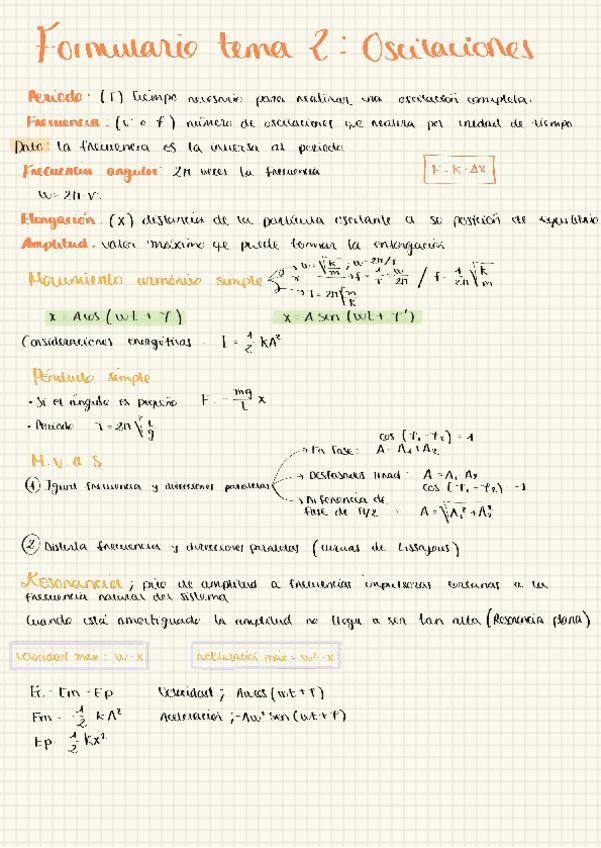 Formulario tema 2: Oscilaciones
Periodo: (T) tiempo necesario para realizar una oscilación completa.
Frecuencia: (ν o f) número de oscilaciones que realiza por unidad de tiempo
Dato: la frecuencia es la inversa al periodo
Frecuencia angular: 2π veces la frecuencia
F = K · Δx
ω = 2π·ν.
Elongación: (x) distancia de la partícula oscilante a su posición de equilibrio
Amplitud: valor máximo que puede tomar la enlongación
Movimiento armónico simple
ω = √(k/m) ; ω = 2π/T
f = 1/T = ω/2π / f = 1/2π √(k/m)
T = 2π√(m/k)
x = A cos (ωt + φ)
x = A sen (ωt + φ')
Consideraciones energéticas: E = 1/2 kA²
Péndulo simple
· Si el ángulo es pequeño F = - mg/L x
· Periodo T = 2π √(L/g)
M.v.a.S
① Igual frecuencia y direcciones paralelas
cos (φ₁ - φ₂) = 1
En fase: A = A₁ + A₂
Desfasados : A = A₁ - A₂
cos (φ₁ - φ₂) = -1
Diferencia de
fase de π/2 : A = √(A₁² + A₂²)
② Distinta frecuencias y direcciones paralelas (curvas de Lissajous)
Resonancia; pico de amplitud a frecuencias impulsoras cercanas a la
frecuencia natural del sistema
Cuando está amortiguado la amplitud no llega a ser tan alta (Resonancia plana)
velocidad máx: ω · x
aceleración máx = ω² · x
Ec = Em - Ep
Velocidad ; Aωcos (ωt + φ)
Em = 1/2 kA²
Aceleración ; -Aω² sen (ωt + φ)
Ep 1/2 kx²